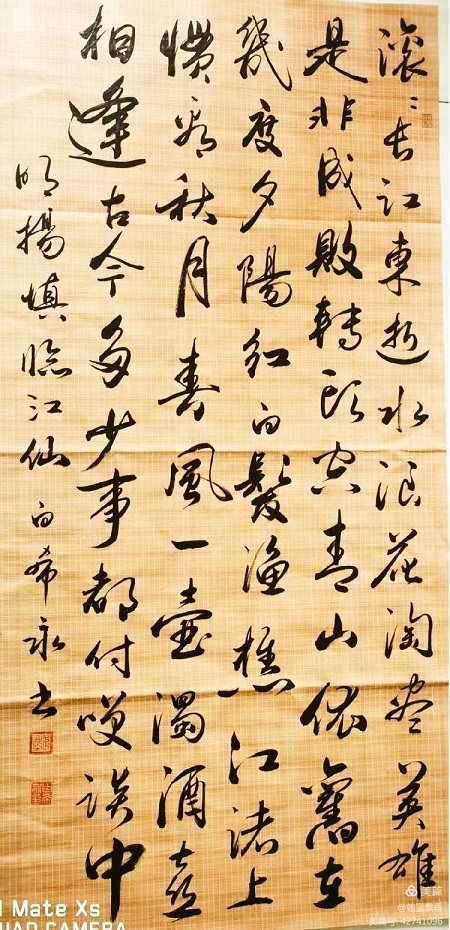 滚〻长江東逝水浪花淘尽英雄
是非成败转头空青山依舊在
几度夕陽红白髮渔樵江渚上
惯看秋月春風一壶濁酒喜
相逢古今多少事都付笑谈中
明楊慎临江仙 白希永书
Mate Xs
QUAD CAMERA
美篇
@翰墨飘香
美篇号:42741096